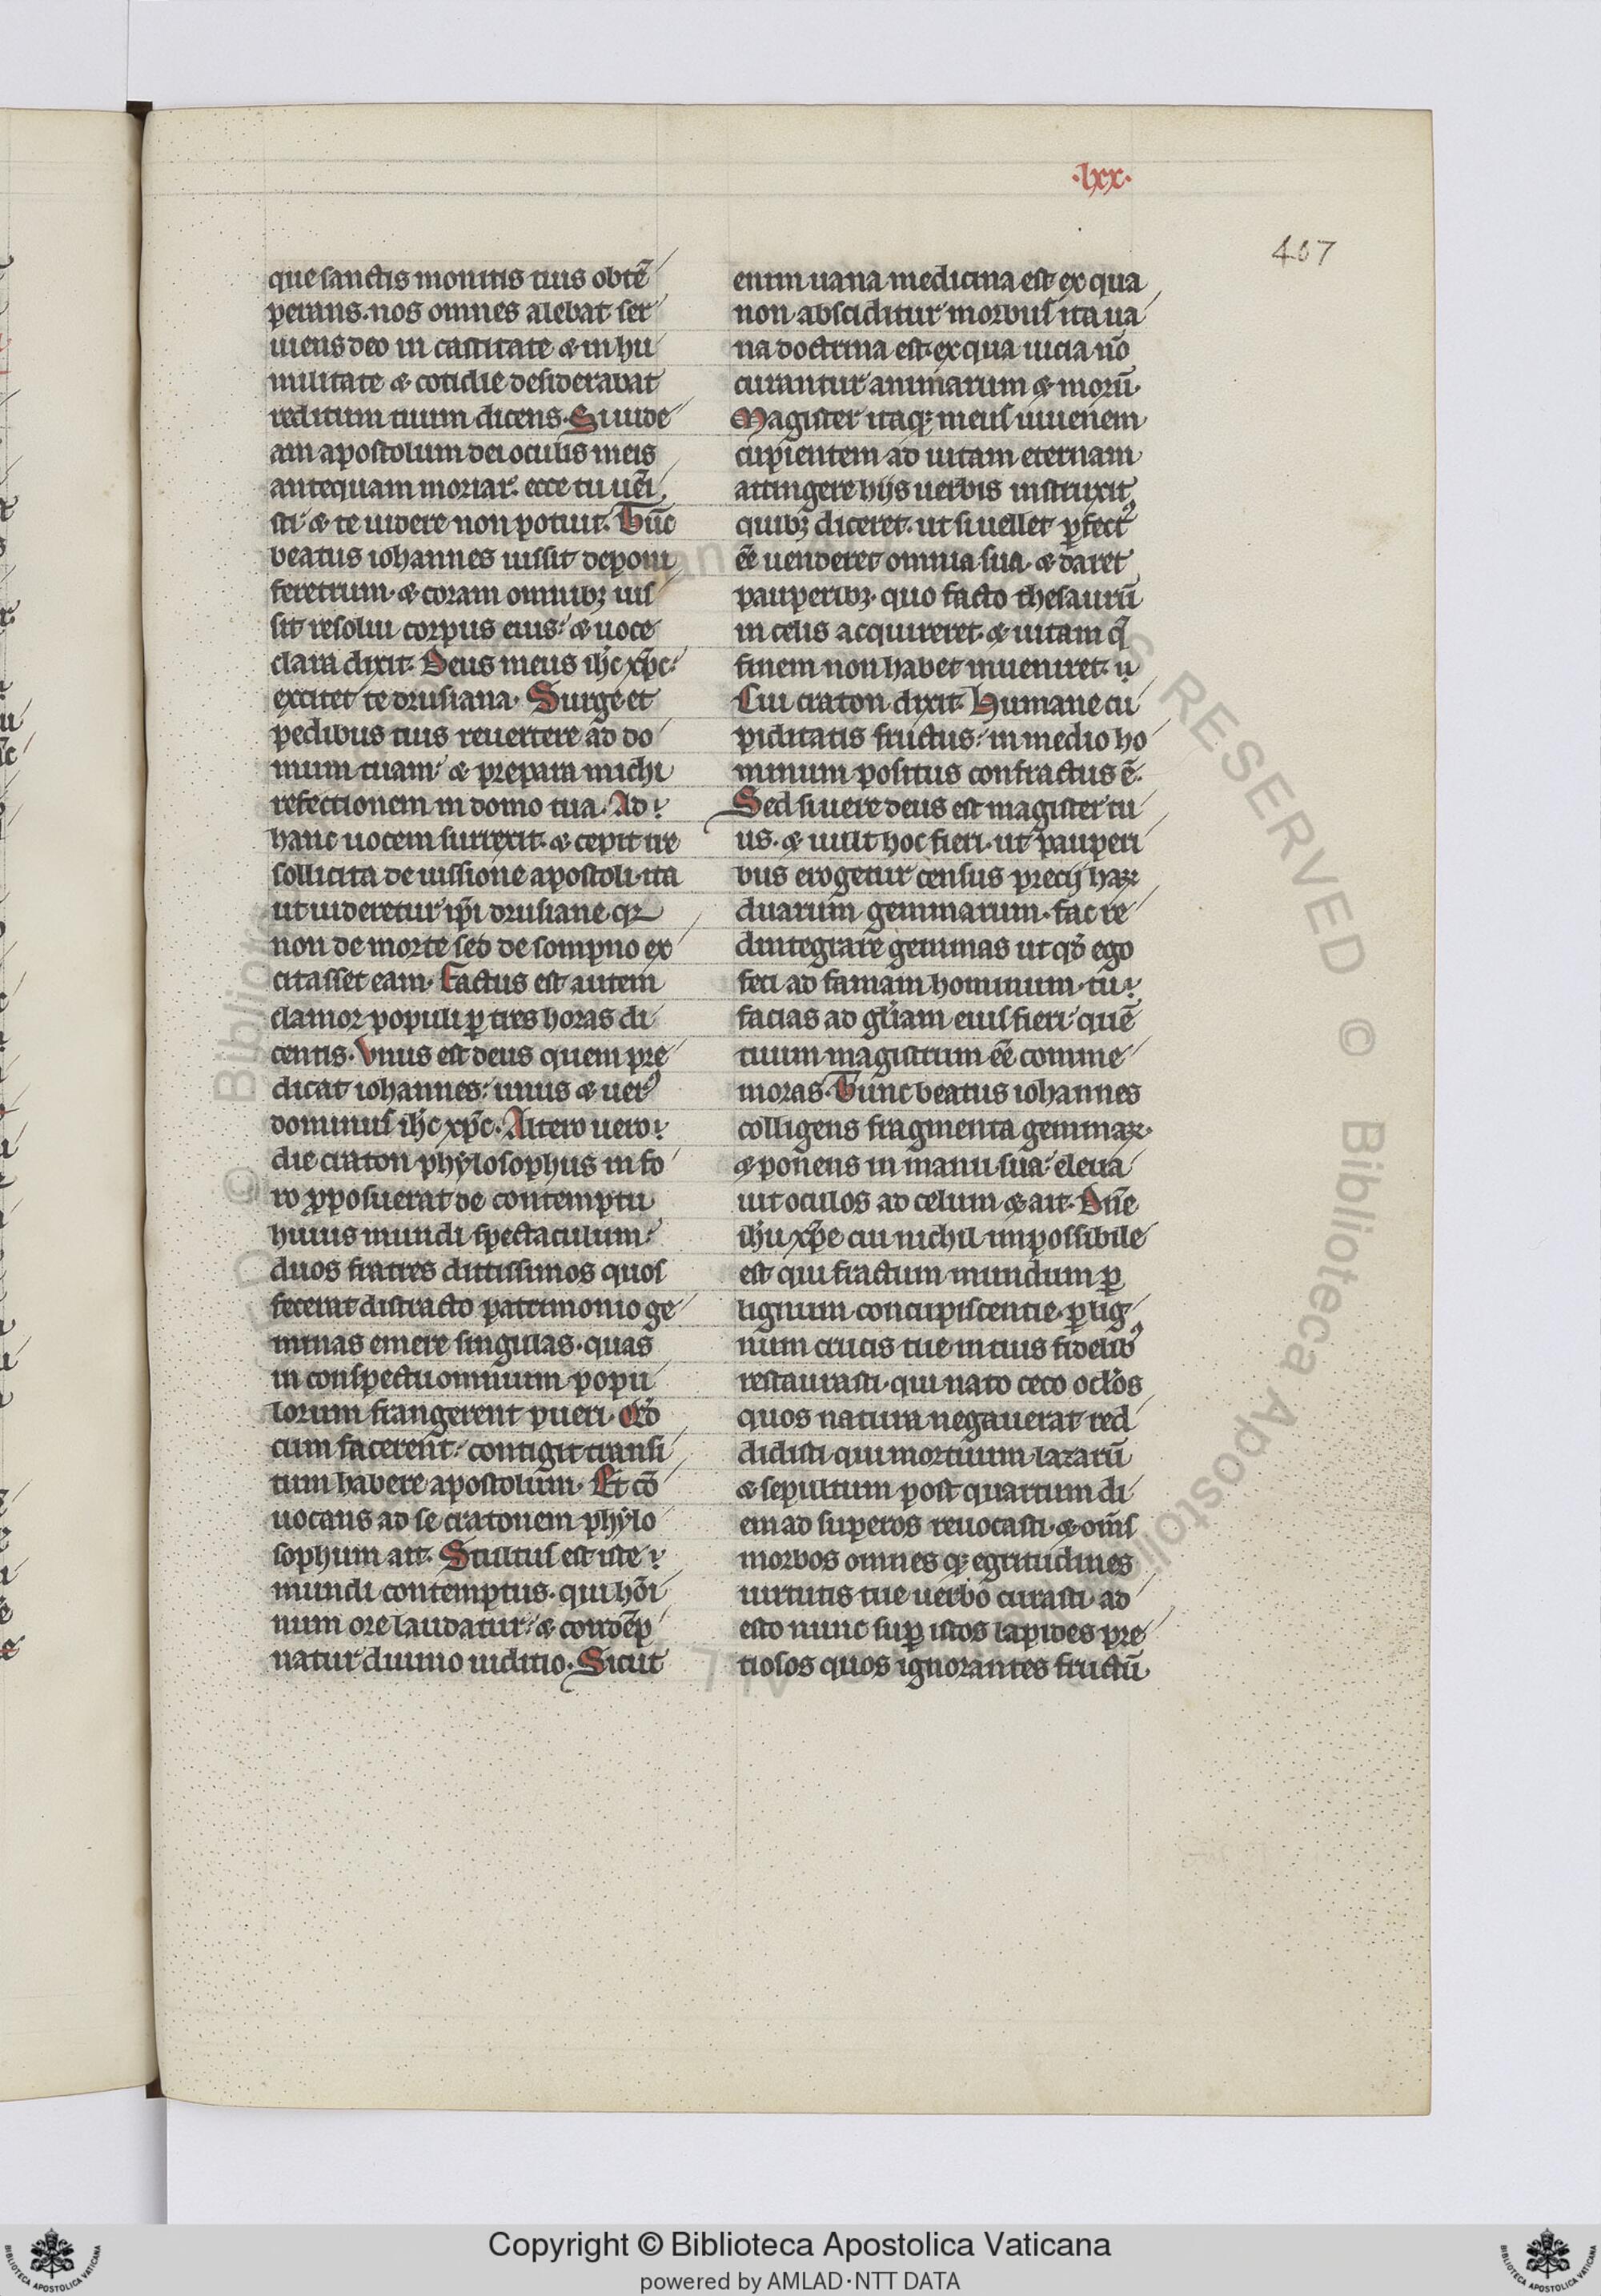 ·lxx·
407
que sanctis monitis tuis obtē
perans. nos omnes alebat ser
uiens deo in castitate & in hu
militate & cotidie desiderabat
reditum tuum dicens. Si uide
am apostolum dei oculis meis
antequam moriar. ecce tu uēi
sti & te uidere non potuit. Tūc
beatus iohannes iussit deponi
feretrum. & coram omnibꝫ ius
sit resolui corpus eius. & uoce
clara dixit. Deus meus ihc̄ xp̄c
excitet te drusiana. Surge et
pedibus tuis reuertere ad do
mum tuam. & prepara michi
refectionem in domo tua. Ad
hanc uocem surrexit. & cepit ire
sollicita de iussione apostoli. ita
ut uideretur ip̄i drusiane. qꝛ
non de morte sed de sompno ex
citasset eam. Factus est autem
clamor populi ꝑ tres horas di
centis. Vnus est deus quem pre
dicat iohannes. unus & uerꝰ
dominus ihc̄ xp̄c. Altero uero
die craton phylosophus in fo
ro ꝓposuerat de contemptu
huius mundi spectaculum.
duos fratres ditissimos quos
fecerat distracto patrimonio ge
mmas emere singulas. quas
in conspectu omnium popu
lorum frangerent pueri. Qd̄
cum facerent. contigit transi
tum habere apostolum. Et cō
uocans ad se cratonem phylo
sophum ait. Stultus est iste
mundi contemptus. qui hōi
num ore laudatur. & condēp
natur diuino iuditio. Sicut
enim uana medicina est ex qua
non absciditur morbus ita ua
na doctrina est. ex qua uicia nō
curantur animarum & morū.
Magister itaqꝫ meus iuuenem
cupientem ad uitam eternam
attingere hijs uerbis instruxit
quibꝫ diceret. ut si uellet ꝑfectꝰ
eē uenderet omnia sua. & daret
pauperibꝫ. quo facto thesaurū
in celis acquireret. & uitam q̄
finem non habet inueniret.
Cui craton dixit. Humane cu
piditatis fructus. in medio ho
minum positus confractus ē.
Sed si uere deus est magister tu
us. & uult hoc fieri. ut pauperi
bus erogetur census precij haꝝ
duarum gemmarum. fac re
dintegrare gemmas ut qd̄ ego
feci ad famam hominum. tu
facias ad gl̄iam eius fieri quē
tuum magistrum eē comme
moras. Tunc beatus iohannes
colligens fragmenta gemmaꝝ.
& ponens in manu sua. eleua
uit oculos ad celum & ait. Dn̄e
ihū xp̄e cui nichil impossibile
est qui fractum mundum ꝑ
lignum concupiscentie. ꝑ lig
num crucis tue in tuis fidelibꝰ
restaurasti. qui nato ceco oclōs
quos natura negauerat red
didisti. qui mortuum lazarū
& sepultum post quartum di
em ad superos reuocasti. & om̄s
morbos omnes qꝫ egritudines
uirtutis tue uerbo curasti. ad
esto nunc suꝑ istos lapides pre
tiosos quos ignorantes fructū
Copyright © Biblioteca Apostolica Vaticana
powered by AMLAD·NTT DATA